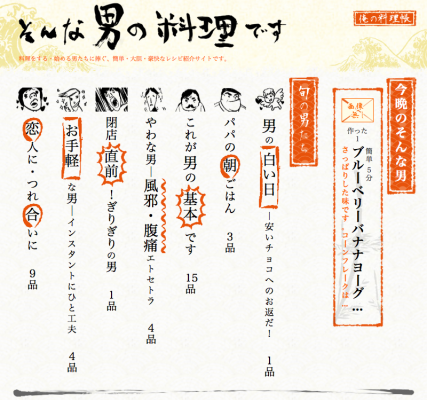 そんな男の料理です
俺の料理帳
料理をする・始める男たちに捧ぐ。簡単・大胆・豪快なレシピ紹介サイトです。
今晩のそんな男
画像無
簡単 5分
作ったー
ブルーベリーバナナヨーグ…
さっぱりした味です。コーンフレークは…
旬の男たち
男の白い日―安いチョコへのお返だ! 1品
パパの朝ごはん 3品
これが男の基本です 15品
やわな男―風邪・腹痛エトセトラ 4品
閉店直前!ぎりぎりの男 1品
お手軽な男―インスタントにひと工夫 4品
恋人に・つれ合いに 9品